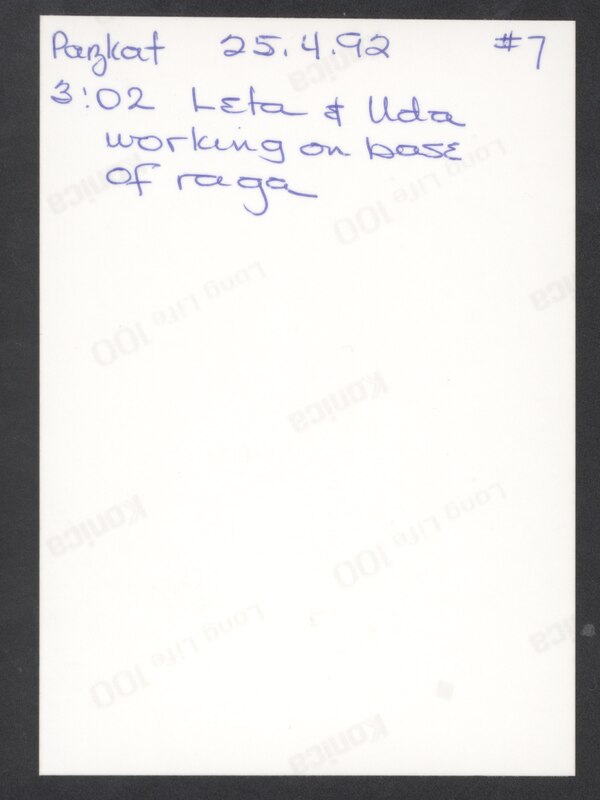 Pazkat 25.4.92 #7
3:02 Leta & Uda
working on base
of raga
Konica
Konica
Long Life 100
Konica
Long Life 100
Konica
Long Life 100
Konica
Long Life 100
Konica
Konica